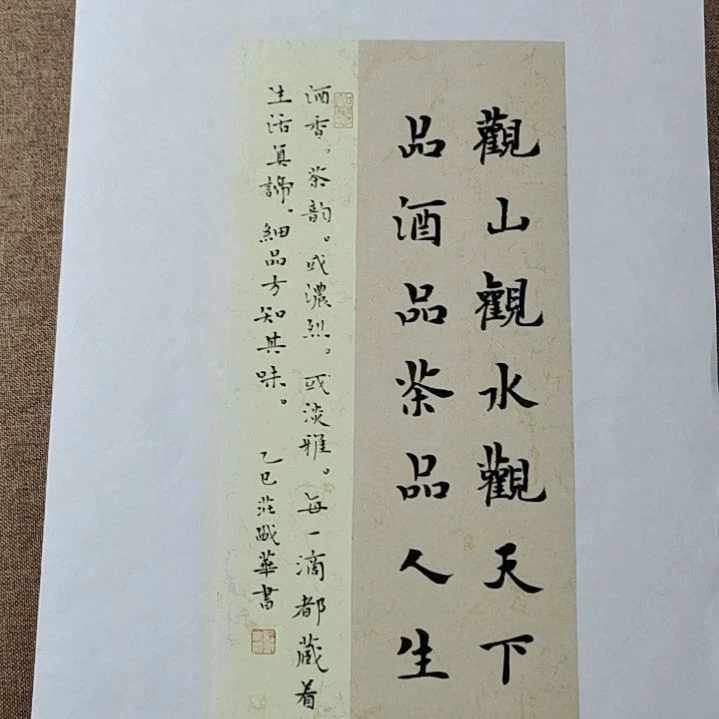 觀山觀水觀天下
品酒品茶品人生
酒香。茶韵。或濃烈。或淡雅。每一滴都藏着
生活真諦。細品方知其味。 乙巳莊 華書